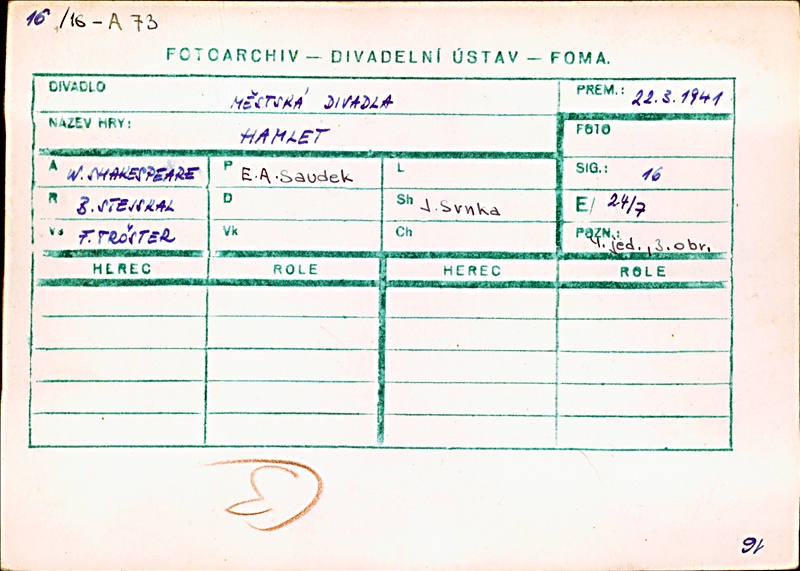 16/16-A 73
FOTOARCHIV — DIVADELNÍ ÚSTAV — FOMA.
DIVADLO MĚSTSKÁ DIVADLA PREM.: 22.3.1941
NÁZEV HRY: HAMLET FOTO
A W. SHAKESPEARE P E.A. Saudek L SIG.: 16
R B. STEJSKAL D Sh J. Srnka E/ 24/7
Vs F. TRÖSTER Vk Ch POZN.: 4. jed., 3. obr.
HEREC ROLE HEREC ROLE
16